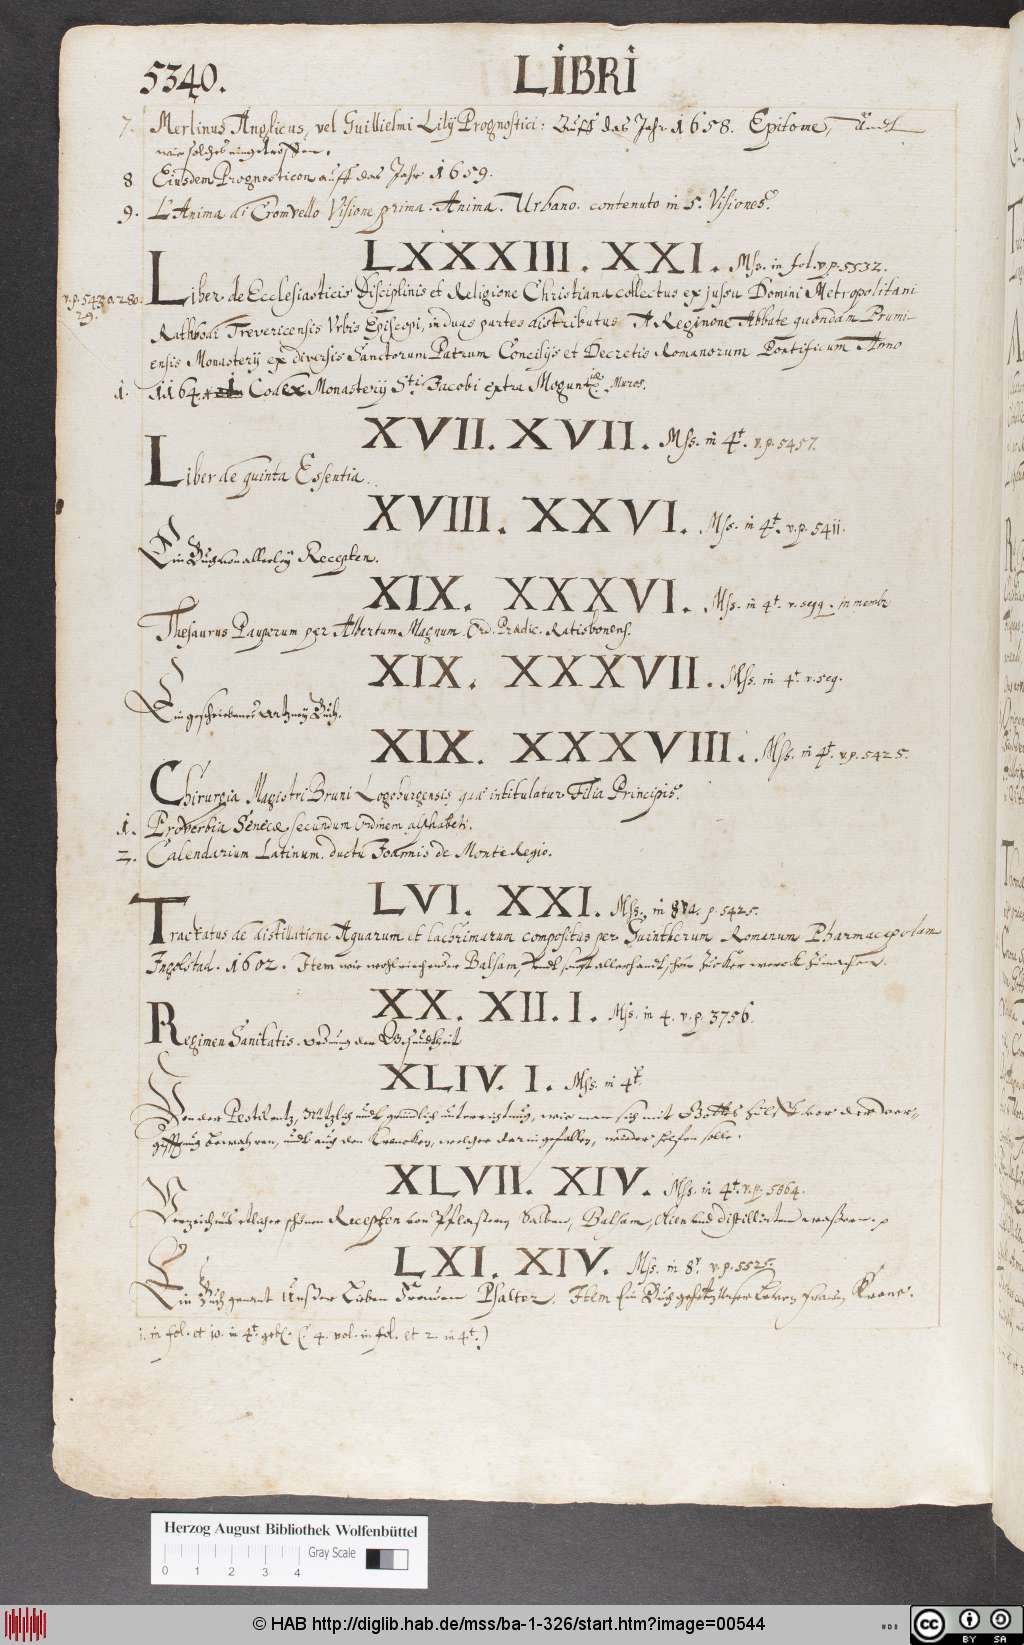 5340. LIBRI
7. Merlinus Anglicus, vel Guillielmi Lilÿ Prognostici: Auff das Jahr 1658. Epitome, Undt
wie solches eingetroffen.
8 Eiusdem Prognosticon auff das Jahr 1659.
9. L'Anima di Cromvello Visione prima. Anima. Urbano. contenuto in 5. Visiones.
LXXXIII. XXI. Mss. in fol. v.p. 5332.
v.p. 5430. 280.
29.
Liber de Ecclesiasticis Disciplinis et Religione Christiana collectus ex jussu Domini Metropolitani
Rathbodi Trevericensis Urbis Episcopi, in duas partes distributus A Reginone Abbate quondam Prumi-
ensis Monasterij ex diversis Sanctorum Patrum Concilijs et Decretis Romanorum Pontificum Anno
1. 1164. Codex Monasterij Sti. Jacobi extra Mogunt. Muros.
XVII. XVII. Mss. in 4t. v.p. 5457.
Liber de quinta Essentia.
XVIII. XXVI. Mss. in 4t. v.p. 5411.
Ein Buch von allerleÿ Recepten.
XIX. XXXVI. Mss. in 4t. v. seqq. in membr
Thesaurus Pauperum per Albertum Magnum. Ord. Prædic. Ratisbonens.
XIX. XXXVII. Mss. in 4t. v. seq.
Ein geschriebenes Artzneÿ Buch.
XIX. XXXVIII. Mss. in 4t. v.p. 5425.
Chirurgia Magistri Bruni Logoburgensis quæ intitulatur Filia Principis.
1. Proverbia Senecæ secundum ordinem alphabeti.
2. Calendarium Latinum. ductu Joannis de Monte Regio.
LVI. XXI. Mss. in 4. p. 5425.
Tractatus de distillatione Aquarum et lacrimarum compositus per Guintherum Romanum Pharmacopolam
Ingolstad. 1602. Item wie wohlriechender Balsam, undt sonst allerhandt schön Zucker werck zumachen.
XX. XII. I. Mss. in 4. v.p. 3756.
Regimen Sanitatis. Ordnung der Gesundtheit
XLIV. I. Mss. in 4t.
Von der Pestilentz, Nützlich undt gründlich unterrichtung, wie man sich mit Gottes hülff vor der ver-
gifftung bewahren, undt auch den Krancken, welcher darin gefallen, wieder helfen solle.
XLVII. XIV. Mss. in 4t. v.p. 5064.
Verzeichnus etlicher schönen Recepten von Pflastern, Salben, Balsam, Ölen und distillirten wassern.
LXI. XIV. Mss. in 8t. v.p. 5525.
Ein Buch genant Unßer Lieben Frauwen Psalter. Item Ein Buch geheißen Unser Lieben Frauen Krone.
1. in fol. et 10. in 4t. geb. ( 4. vol. in fol. et 2. in 4t.)
Herzog August Bibliothek Wolfenbüttel
Gray Scale
0 1 2 3 4
© HAB http://diglib.hab.de/mss/ba-1-326/start.htm?image=00544
cc BY SA